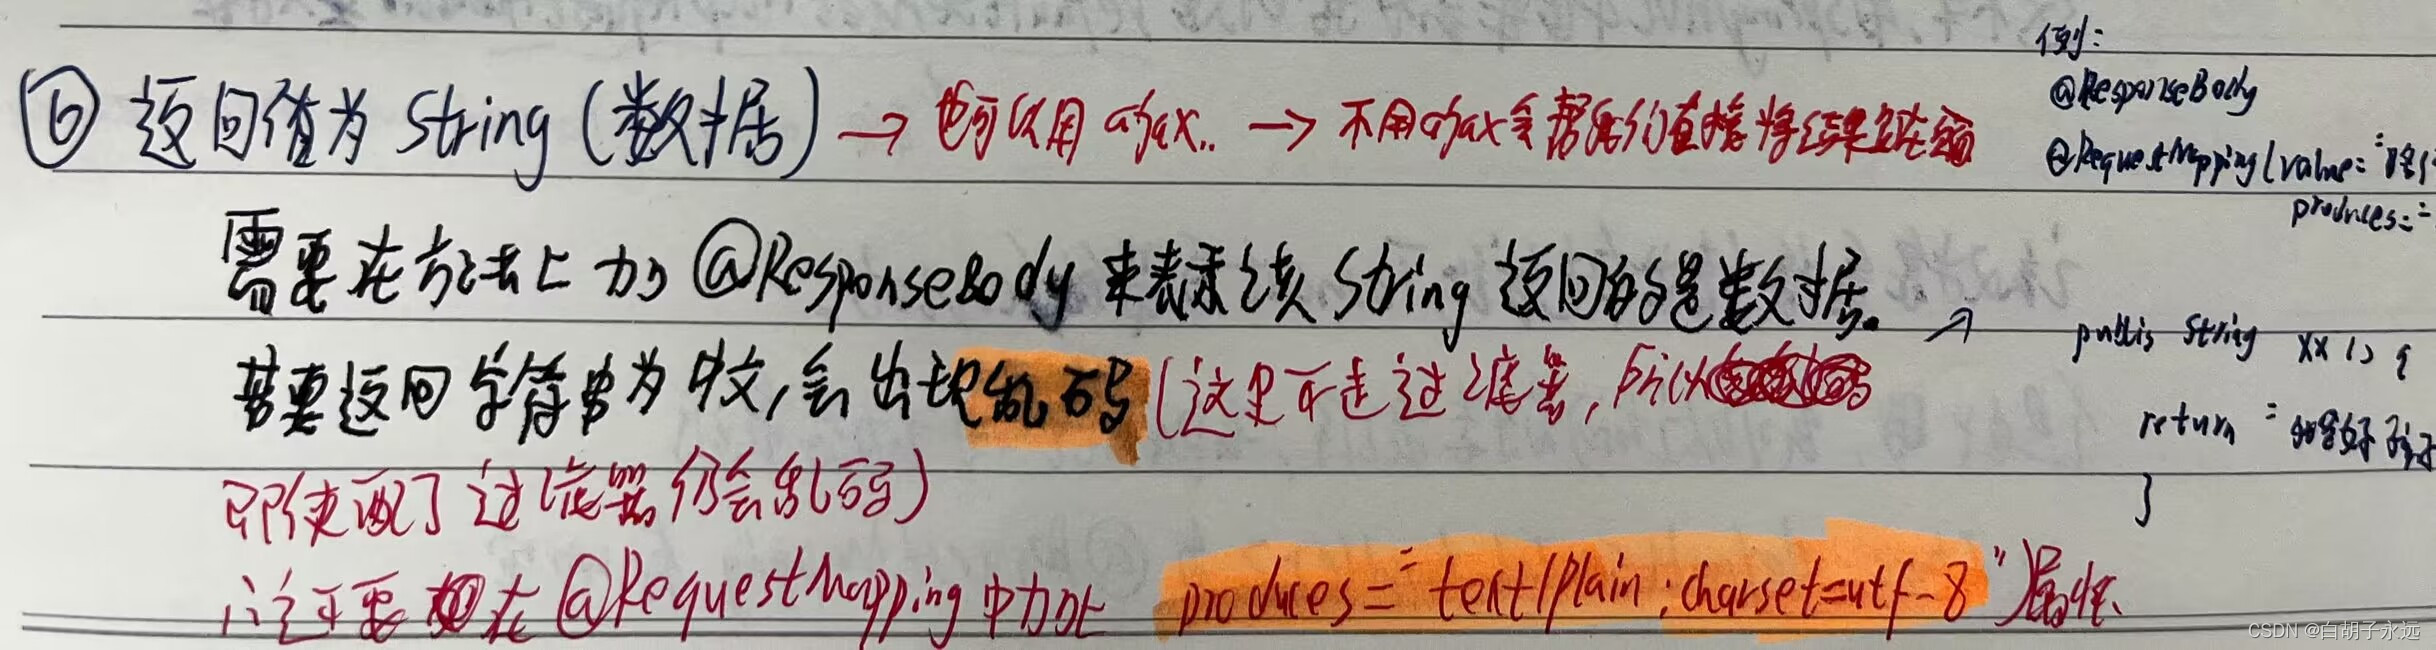 ⑥ 返回值为 String (数据) → 也可以用 ajax.. → 不用ajax会帮我们直接将结果
需要在方法上加 @ResponseBody 来表示该 String 返回的是数据。
若要返回字符串为中文,会出现乱码(这里不走过滤器,所以
即使配了过滤器仍会乱码)
在 @RequestMapping 中加上 produces="text/plain;charset=utf-8"属性
例:
@ResponseBody
@RequestMapping(value="
produces="
public String xx () {
return "
}
CSDN @白胡子永远